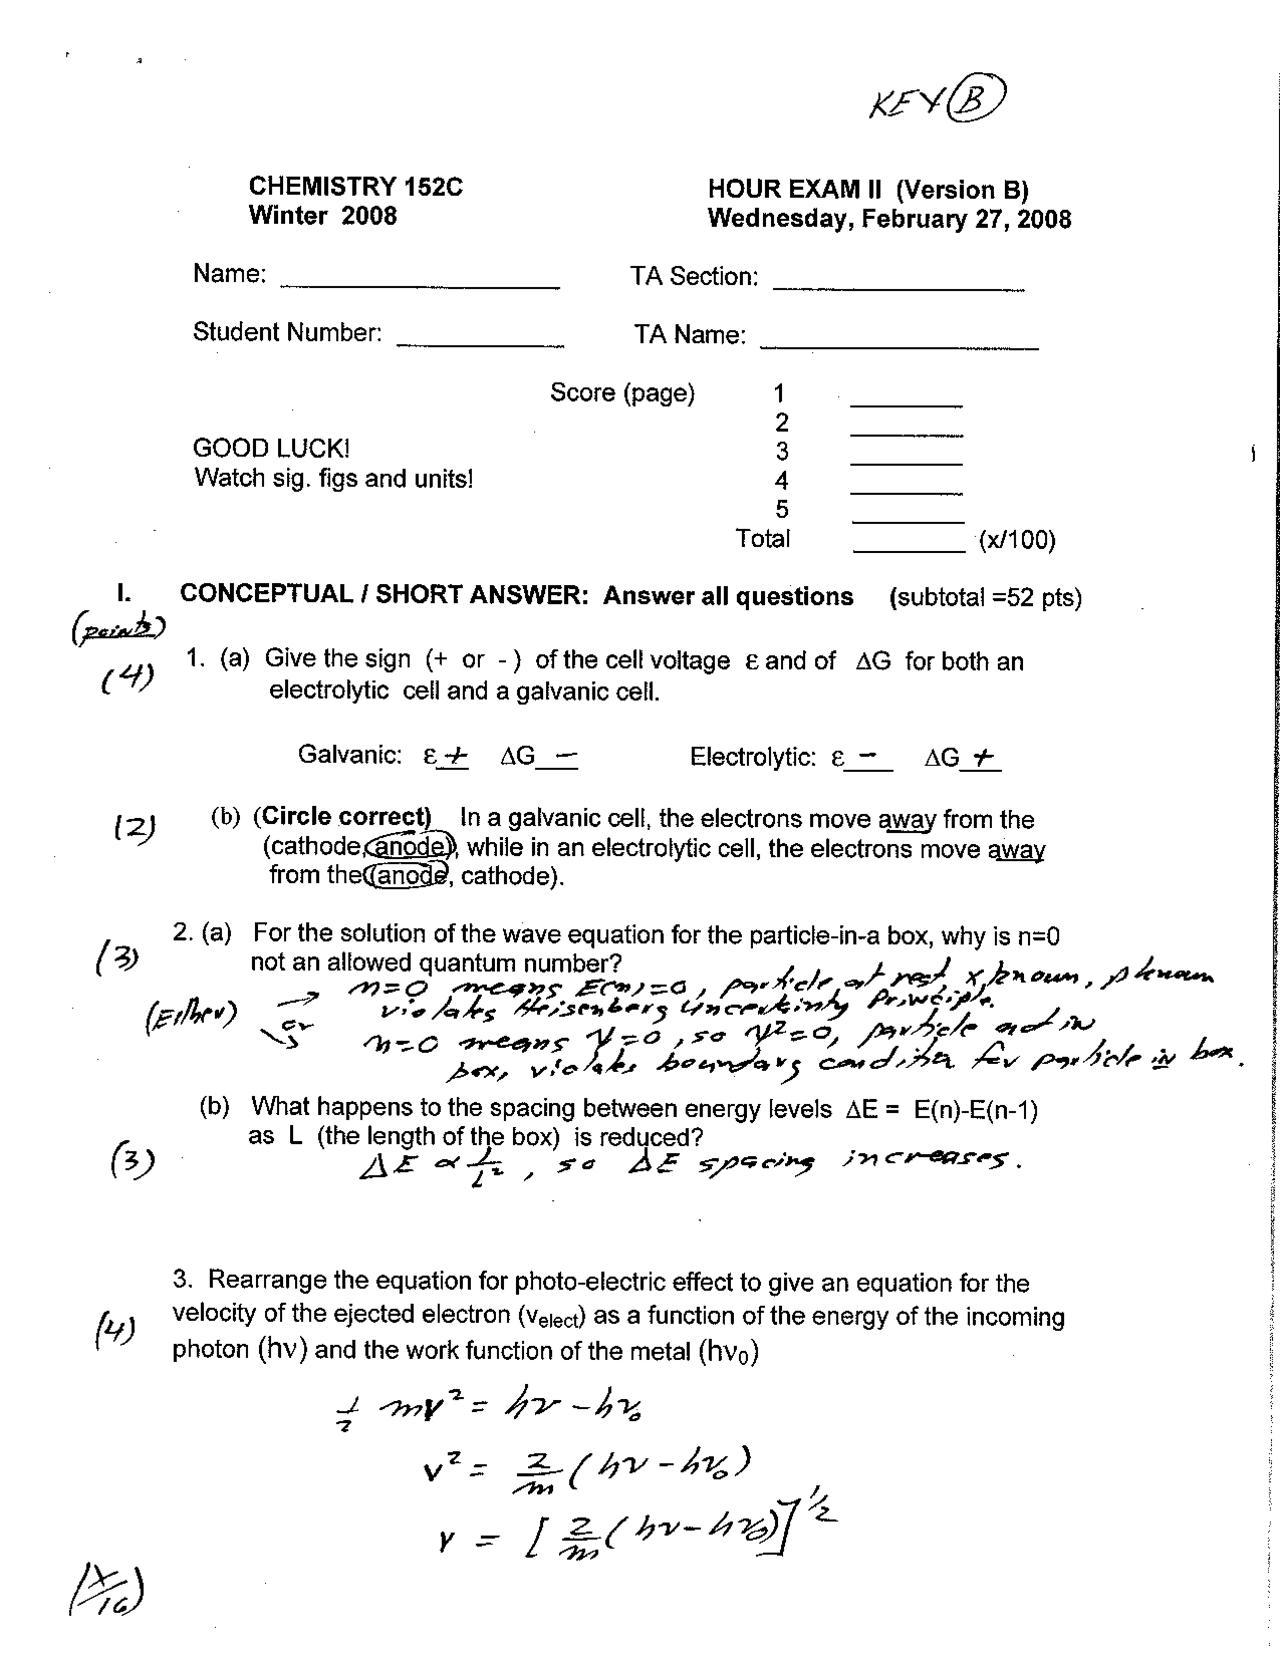 KEY B
CHEMISTRY 152C
Winter 2008
HOUR EXAM II (Version B)
Wednesday, February 27, 2008
Name:
TA Section:
Student Number:
TA Name:
Score (page) 1
2
GOOD LUCK!
3
Watch sig. figs and units!
4
5
Total (x/100)
I. CONCEPTUAL / SHORT ANSWER: Answer all questions (subtotal =52 pts)
(points)
(4)
1. (a) Give the sign (+ or - ) of the cell voltage ε and of ΔG for both an
electrolytic cell and a galvanic cell.
Galvanic: ε + ΔG − Electrolytic: ε − ΔG +
(2)
(b) (Circle correct) In a galvanic cell, the electrons move away from the
(cathode, anode), while in an electrolytic cell, the electrons move away
from the (anode, cathode).
(3)
2. (a) For the solution of the wave equation for the particle-in-a box, why is n=0
not an allowed quantum number?
(Either) → n=0 means E(n)=0, particle at rest, x known, p known
violates Heisenberg Uncertainty Principle.
or
n=0 means Ψ=0, so Ψ²=0, particle not in
box, violates boundary condition for particle in box.
(3)
(b) What happens to the spacing between energy levels ΔE = E(n)-E(n-1)
as L (the length of the box) is reduced?
ΔE ∝ 1/L², so ΔE spacing increases.
(4)
3. Rearrange the equation for photo-electric effect to give an equation for the
velocity of the ejected electron (velect) as a function of the energy of the incoming
photon (hν) and the work function of the metal (hν₀)
1/2 mv² = hν − hν₀
v² = 2/m (hν − hν₀)
v = [2/m (hν − hν₀)]^1/2
(x/16)